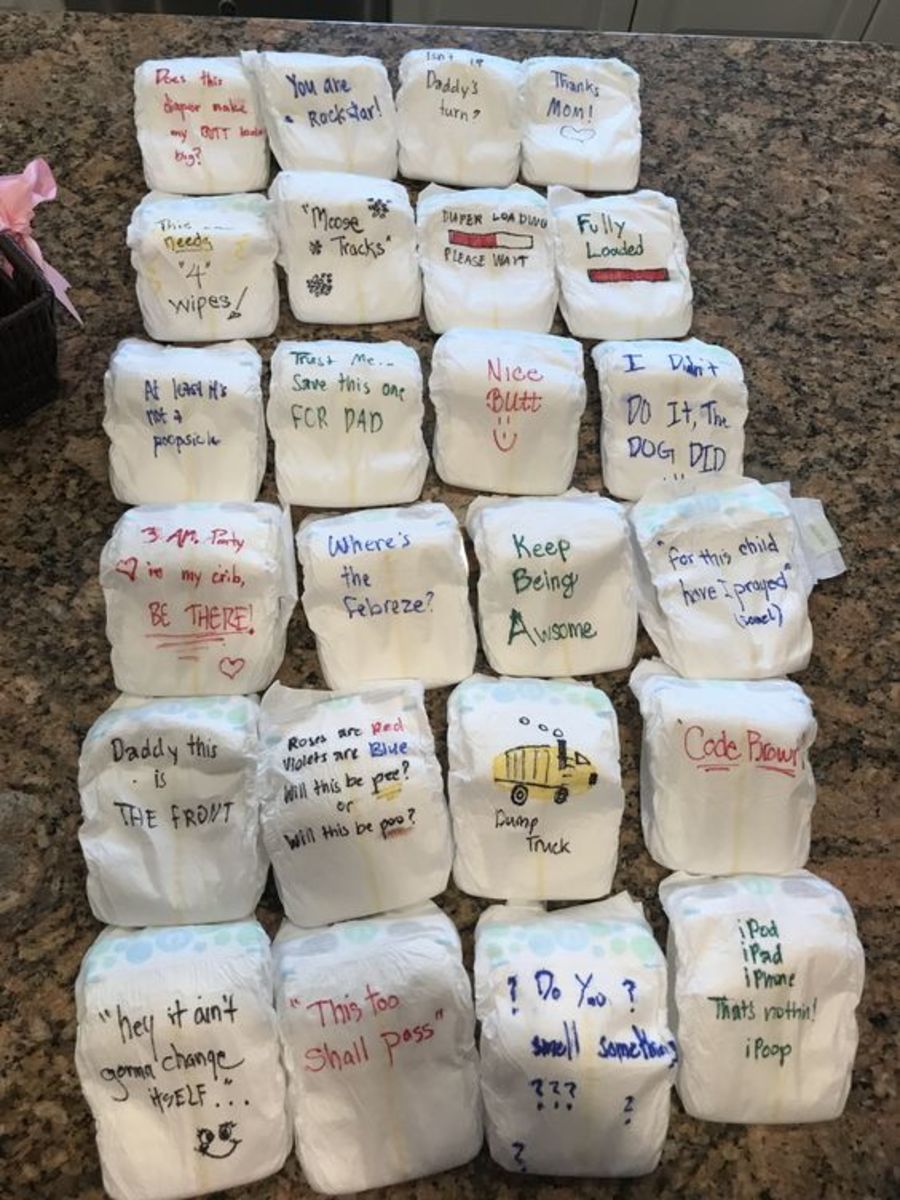 Does this
diaper make
my BUTT look
big?
You are
a Rockstar!
Isn't it
Daddy's
turn?
Thanks
MOM!
This
needs
"4"
wipes!
"Moose
Tracks"
DIAPER LOADING
PLEASE WAIT
Fully
Loaded
At least it's
not a
poopsicle
Trust Me...
Save this one
FOR DAD
Nice
Butt
I Didn't
DO It, The
DOG DID
3 A.M. Party
in my crib,
BE THERE!
Where's
the
Febreze?
Keep
Being
Awsome
"For this child
have I prayed"
Daddy this
is
THE FRONT
Roses are Red
Violets are Blue
Will this be pee?
or
Will this be poo?
Dump
Truck
"Code Brown
"hey it ain't
gonna change
itSELF...
"This too
Shall pass"
? Do You ?
smell something
???
?
?
iPod
iPad
iPhone
Thats nothin!
iPoop